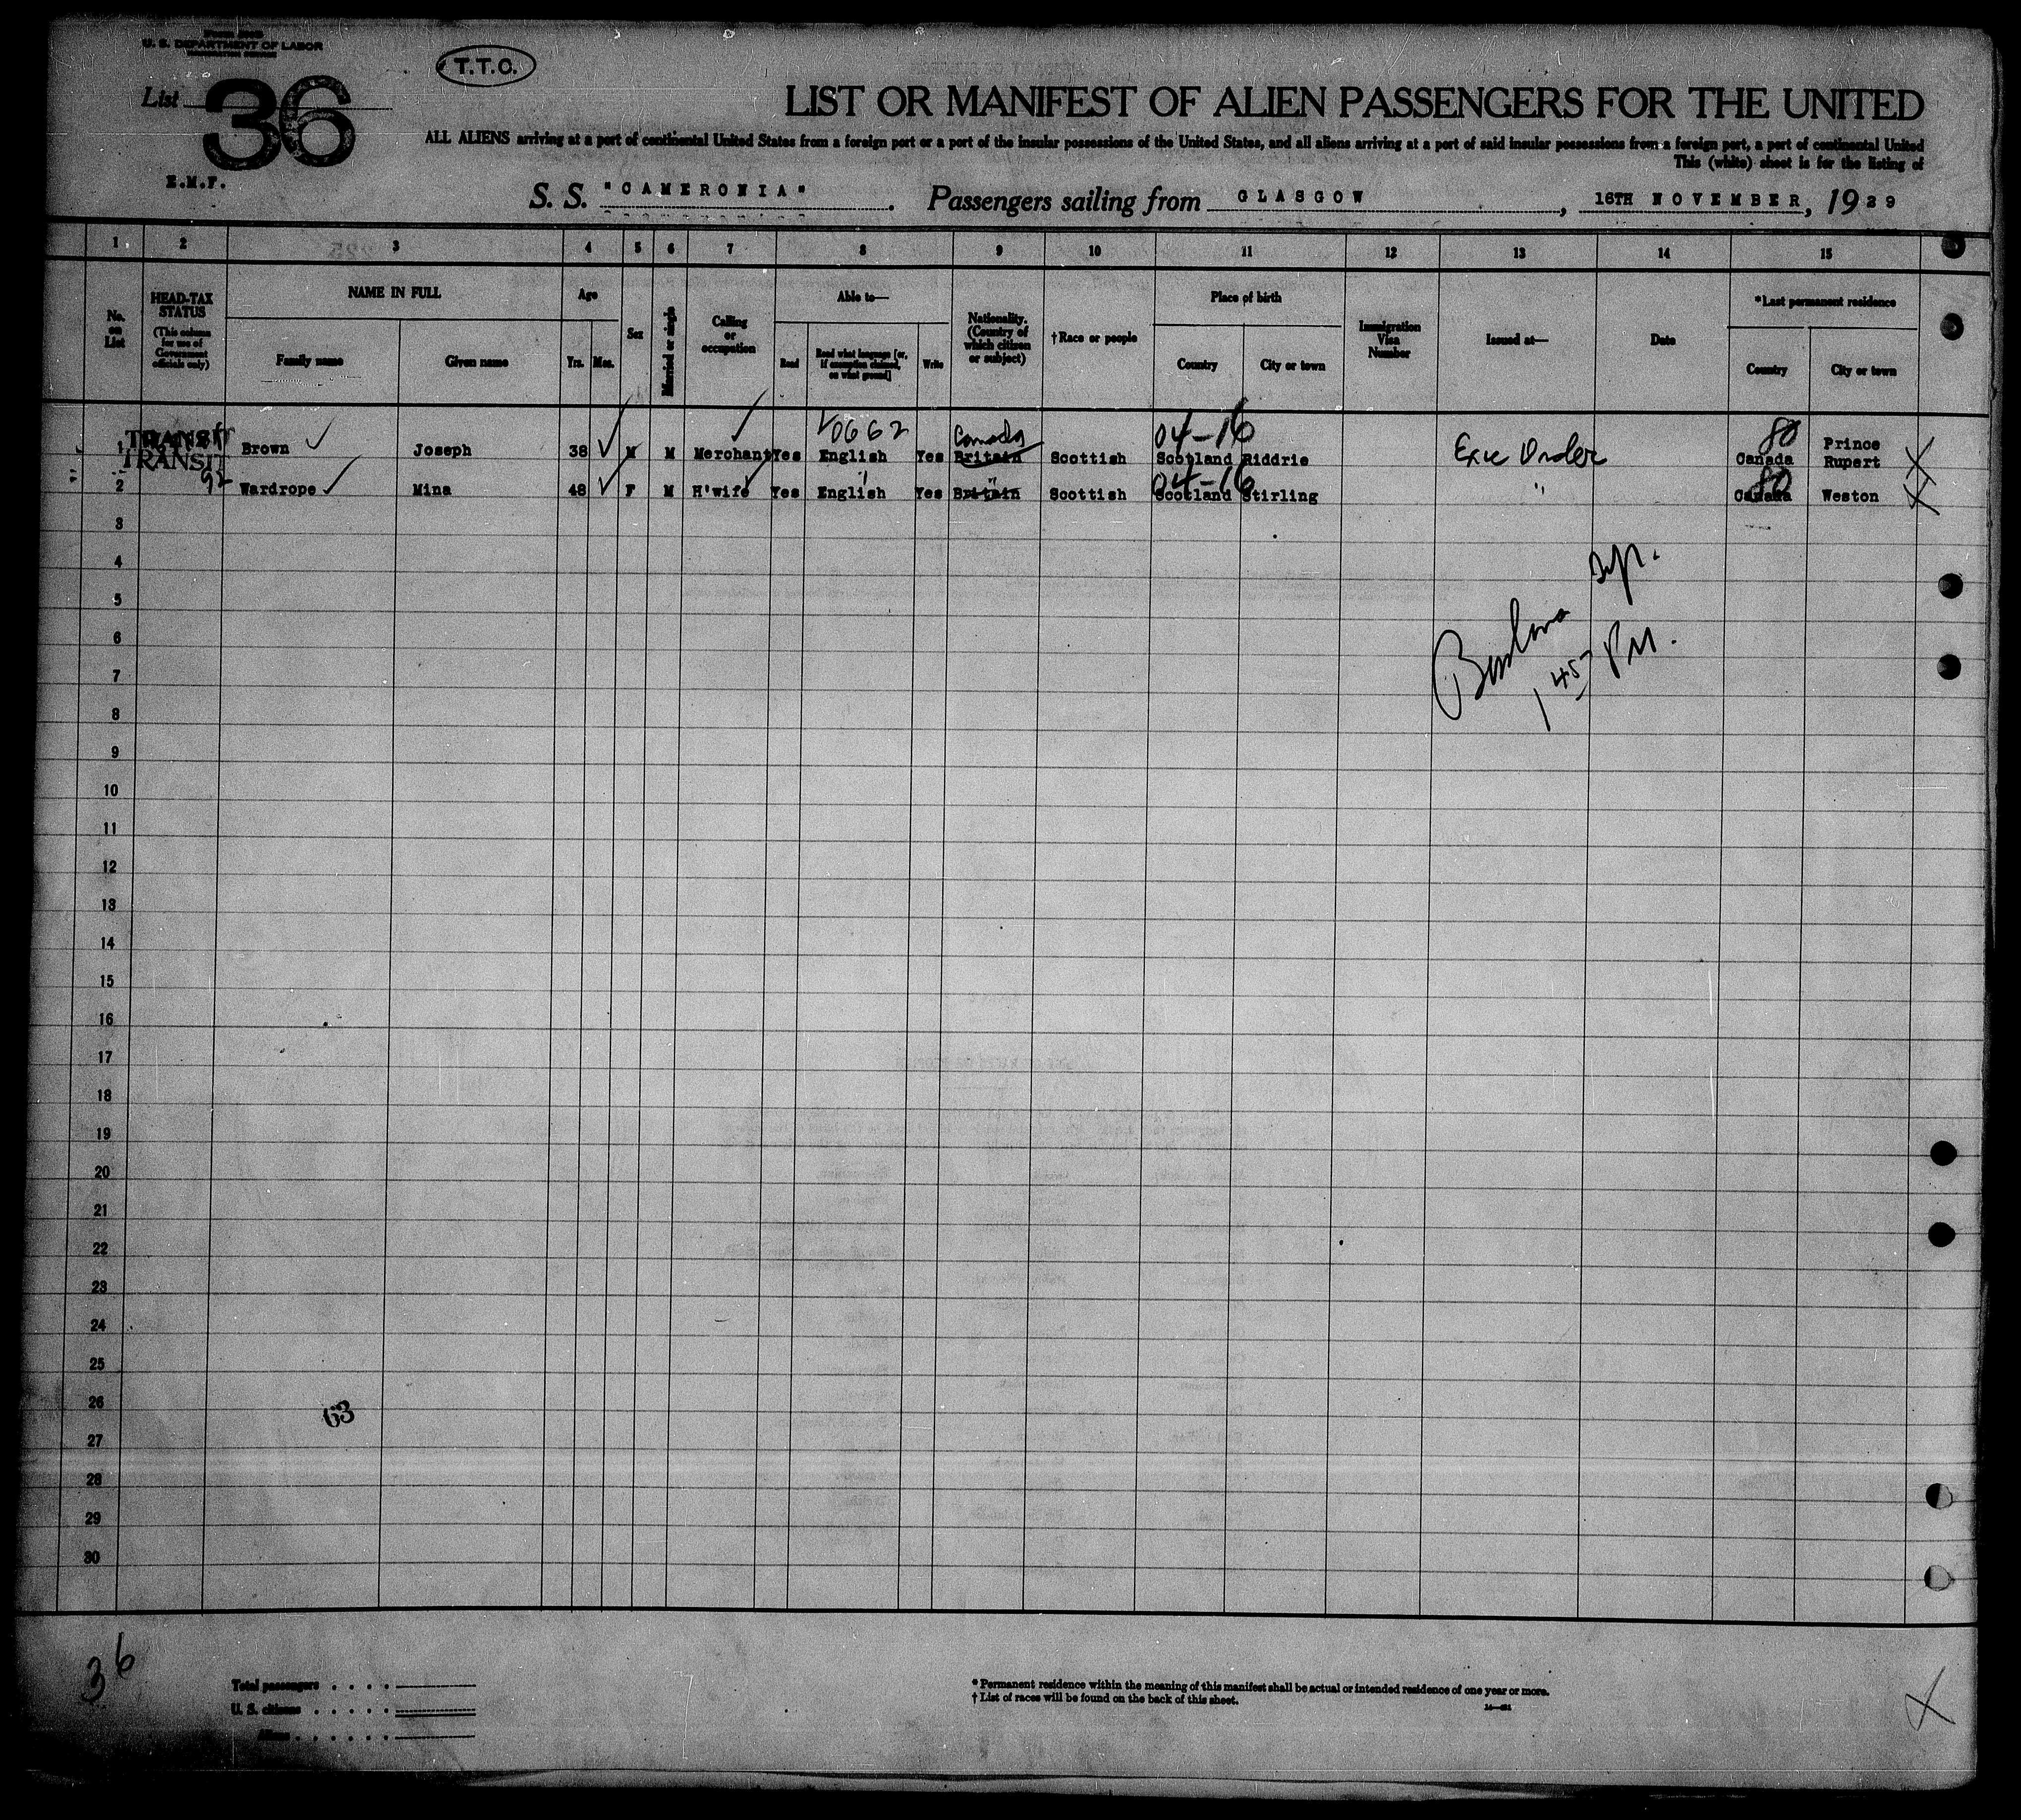 U. S. DEPARTMENT OF LABOR
T.T.C.
List 36
LIST OR MANIFEST OF ALIEN PASSENGERS FOR THE UNITED
ALL ALIENS arriving at a port of continental United States from a foreign port or a part of the insular possessions of the United States, and all aliens arriving at a port of said insular possessions from a foreign port, a part of continental United
This (white) sheet is for the listing of
E.M.F.
S. S. "CAMERONIA". Passengers sailing from GLASGOW, 16TH NOVEMBER, 1929
1 2 3 4 5 6 7 8 9 10 11 12 13 14 15
No. on List
HEAD-TAX STATUS (This column for use of Government officials only)
NAME IN FULL
Family name Given name
Age
Yrs. Mos.
Sex
Married or single
Calling or occupation
Able to—
Read Read what language [or, if exemption claimed, on what ground] Write
Nationality. (Country of which citizen or subject)
†Race or people
Place of birth
Country City or town
Immigration Visa Number
Issued at—
Date
*Last permanent residence
Country City or town
TRANSIT 0662 Canada 04-16 80
1 Brown Joseph 38 M M Merchant Yes English Yes Britain Scottish Scotland Riddrie Exe Order Canada Prince Rupert
TRANSIT
92 04-16 80
2 Wardrope Mina 48 F M H'wife Yes English Yes Britain Scottish Scotland Stirling " Canada Weston
3
4
5
6
7
1 45 PM.
8
9
10
11
12
13
14
15
16
17
18
19
20
21
22
23
24
25
26
63
27
28
29
30
36
Total passengers
U. S. citizens
Aliens
* Permanent residence within the meaning of this manifest shall be actual or intended residence of one year or more.
† List of races will be found on the back of this sheet.